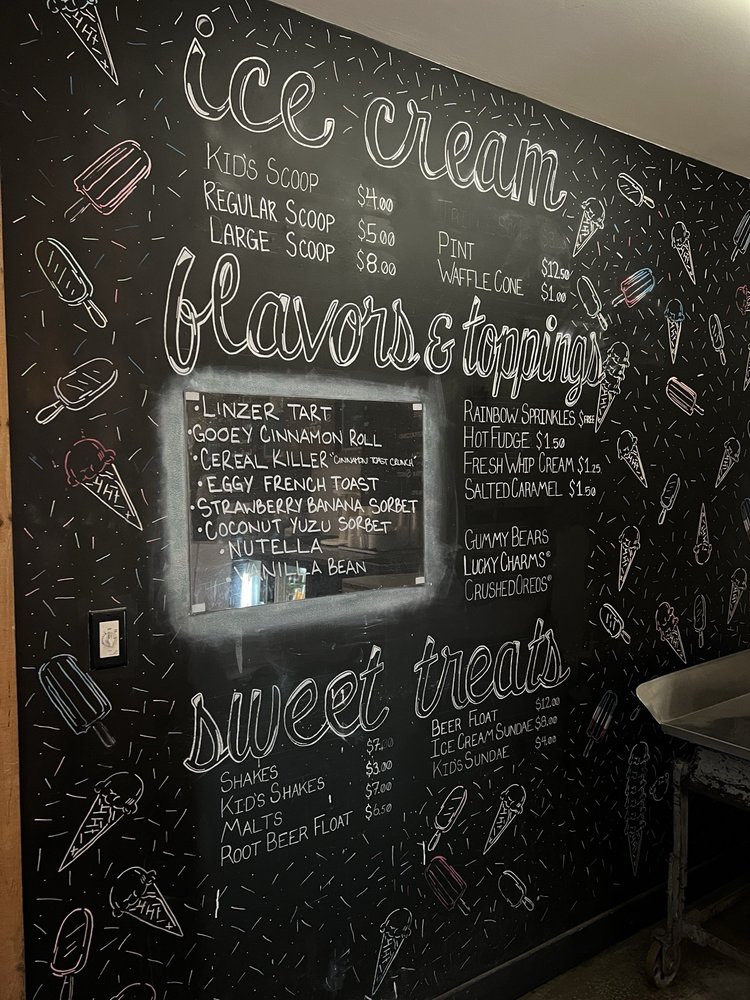 ice cream
KID'S SCOOP $4.00
REGULAR SCOOP $5.00
LARGE SCOOP $8.00
PINT $12.50
WAFFLE CONE $1.00
flavors & toppings
• LINZER TART
• GOOEY CINNAMON ROLL
• CEREAL KILLER "CINNAMON TOAST CRUNCH"
• EGGY FRENCH TOAST
• STRAWBERRY BANANA SORBET
• COCONUT YUZU SORBET
• NUTELLA
• VANILLA BEAN
RAINBOW SPRINKLES $FREE
HOT FUDGE $1.50
FRESH WHIP CREAM $1.25
SALTED CARAMEL $1.50
GUMMY BEARS
LUCKY CHARMS®
CRUSHED OREOS®
sweet treats
SHAKES $7.00
KID'S SHAKES $3.00
MALTS $7.00
ROOT BEER FLOAT $6.50
BEER FLOAT $12.00
ICE CREAM SUNDAE $8.00
KID'S SUNDAE $4.00